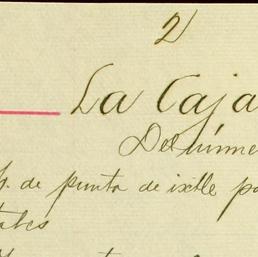 2
La Caja
Del núme
p. de punta de ixtle pa
tales